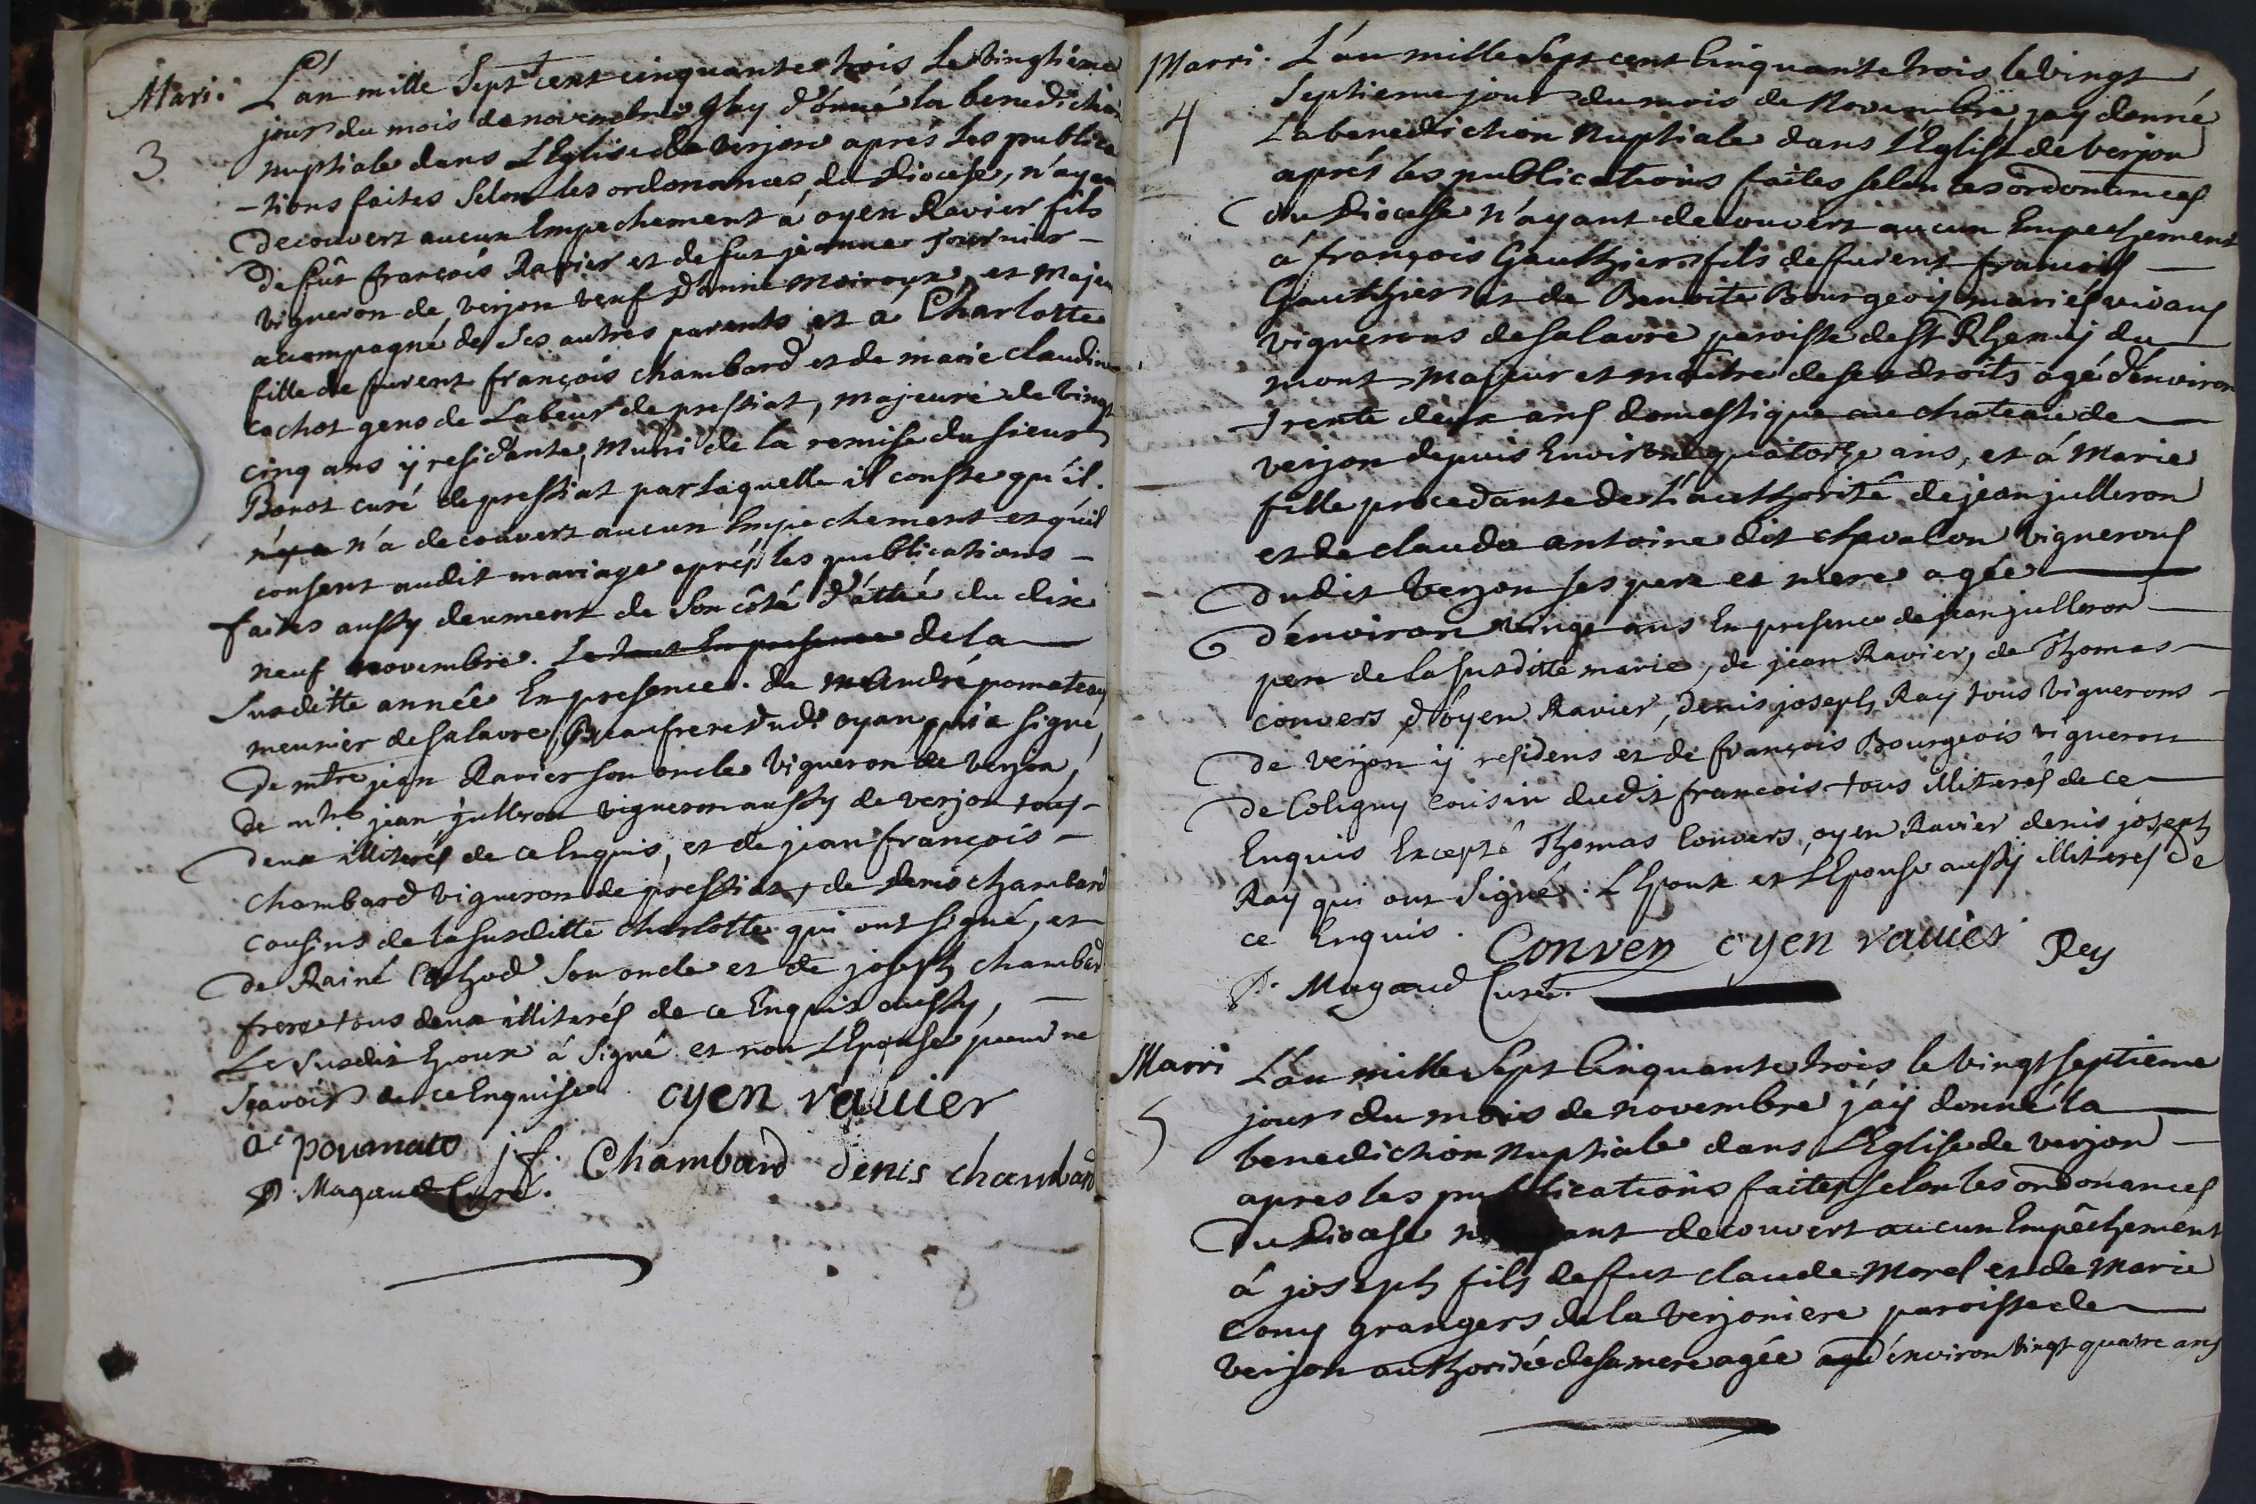 Mari.
3
L'an mille Sept cent cinquante trois le vingtieme
jour du mois de novembre Jay d'onné la benediction
nuptiale dans L'Eglise de verjon aprés les publica
-tions faites Selon les ordonances du Diocese, n'ayan
decouvert aucun Empechement á oyen Ravier fils
de fût françois Ravier et de fut jeanne fournier -
vigneron de verjon veuf d'anne moiroux, et Majeu
acompagné de ses autres parents et á Charlotte
fille de furent françois chambard et de marie claudine
cachot gens de Labeur de pressiat, majeure de vingt
cinq ans ÿ residante, Muni de la remise du sieur
Bonot curé de pressiat par laquelle il conste qu'il.
n'a decouvert aucun Empechement et qu'il
consent audit mariage aprés les publications -
faites aussy deument de son côté d'attée du dixe
neuf novembre. Le tout En presence de la
Susditte année En presence. de m André pomateay
meunier de salavre, Beaufrere dudt oyan qui a signé,
de mtre jean Ravier son oncle vigneron de verjon,
de mtre jean julleron vigneron aussy de verjon tous -
deux illiterés de ce Enquis, et de jean françois -
chambard vigneron de pressiat, de denis chambard
cousins de la susditte charlotte qui ont signé, et
de Rainé Cathod son oncle et de joseph chambard
frere tous deux illiterés de ce Enquis aussy, -
Le susdit Epoux á signé et non L'Epouse pour ne
Sçavoir de ce Enquise. oyen rauier
a poumato j f. Chambard denis chambard
P. Magaud Curé.
Marri.
4
L'an mille Sept cent Cinquante trois le vingt
Septieme jour du mois de Novembre, jay donné
La benediction Nuptiale dans L'Eglise de verjon
aprés les publications faites selon les ordonances
du Diocese n'ayant decouvert aucun Empechement
á françois Gauthier fils de furent francois -
Gauthier et de Benoite Bourgeois mariés vivans
vignerons de salavre paroisse de St Rhemij du
mont, Majeur et maitre de ses droits agé d'environ
trente deux ans domestique au chateau de
verjon depuis Environ quatorze ans, et á Marie
fille procedante de L'authorité de jean julleron
et de claude antoine dit chevalon vignerons
dudit verjon ses pere et mere agée
d'environ vingt ans En presence de jean julleron -
pere de la susditte marie, de jean Ravier, de Thomas -
convers, d'oyen Ravier, denis joseph Ray tous vignerons -
de verjon ij residens et de françois Bourgeois vigneron
de Coligny Cousin dudit francois tous illiterés de ce
Enquis Excepté Thomas Convers, oyen Ravier denis joseph
Ray qui ont signé. L'Epoux et L'Epouse aussÿ illiterés de
ce Enquis. Conven oyen rauier Rey
P. Magaud Curé.
Marri
5
L'an mille Sept Cinquante trois le vingt septieme
jour du mois de novembre j'aÿ donné la
benediction Nuptiale dans L'Eglise de verjon -
apres les publications faites selon les ordonances
du Diocese decouvert aucun Empêchement
á joseph fils de fut claude Morel et de Marie
Cony grangers de la verjoniere paroisse de
verjon authorisée de sa mere agée d'environ vingt quatre ans